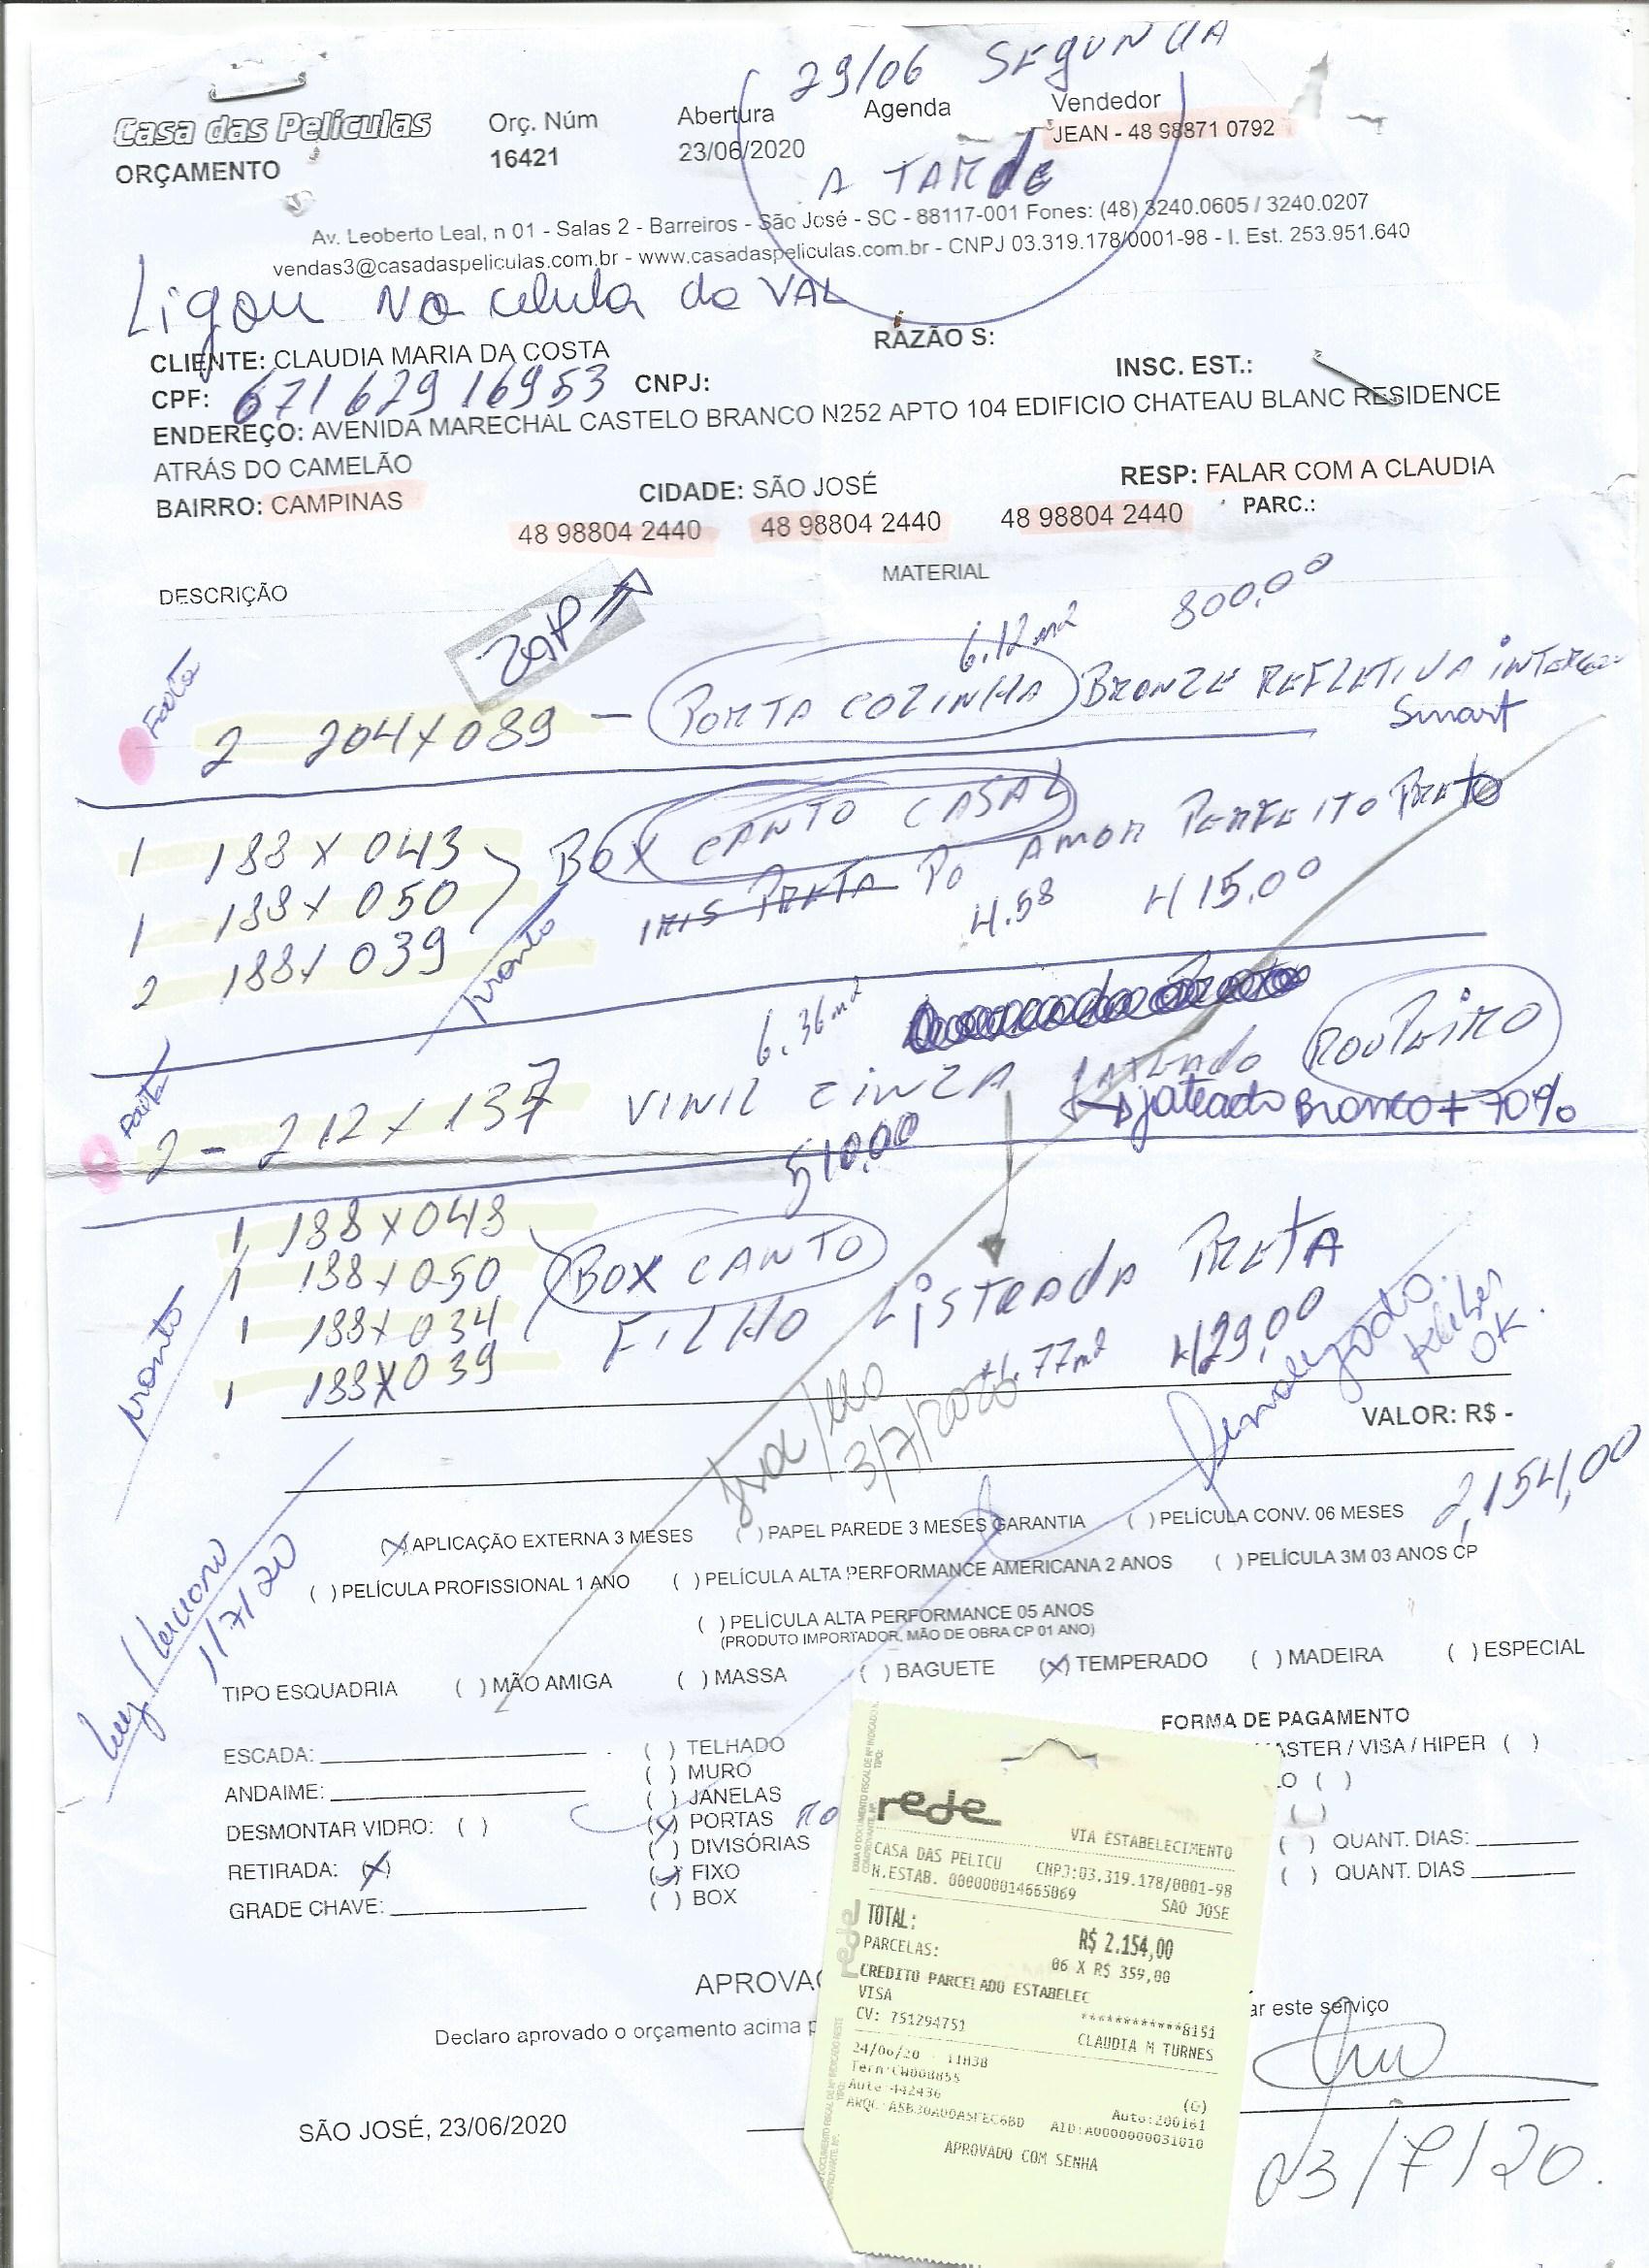 29/06 SEGUNDA
A TARDE
Casa das Películas
ORÇAMENTO
Orç. Núm
16421
Abertura
23/06/2020
Agenda
Vendedor
JEAN - 48 98871 0792
Av. Leoberto Leal, n 01 - Salas 2 - Barreiros - São José - SC - 88117-001 Fones: (48) 3240.0605 / 3240.0207
vendas3@casadaspeliculas.com.br - www.casadaspeliculas.com.br - CNPJ 03.319.178/0001-98 - I. Est. 253.951.640
Ligou No celula do VAL
CLIENTE: CLAUDIA MARIA DA COSTA
RAZÃO S:
CPF: 671 629 16953
CNPJ:
INSC. EST.:
ENDEREÇO: AVENIDA MARECHAL CASTELO BRANCO N252 APTO 104 EDIFICIO CHATEAU BLANC RESIDENCE
ATRÁS DO CAMELÃO
BAIRRO: CAMPINAS
CIDADE: SÃO JOSÉ
RESP: FALAR COM A CLAUDIA
48 98804 2440 48 98804 2440 48 98804 2440
PARC.:
DESCRIÇÃO
MATERIAL
ZAP
6.12 m2 800,00
2 204 x 089 - PORTA COZINHA BRONZE REFLETIVA
Smart
1 188 x 043
1 188 x 050
2 188 x 039
BOX CANTO CASAL
IRIS PRETA PO AMOR PERFEITO PRETO
4.58 415,00
pronto
6.36 m2
2 - 212 x 137 VINIL CINZA JATEADO ROUPEIRO
jateado Branco + 70%
510,00
1 188 x 048
1 188 x 050
1 188 x 034
1 188 x 039
BOX CANTO
FILHO
LISTRADA PRETA
4.77 m2 429,00
pronto
3/7/2020
OK.
VALOR: R$ -
2,154,00
(X) APLICAÇÃO EXTERNA 3 MESES ( ) PAPEL PAREDE 3 MESES GARANTIA ( ) PELÍCULA CONV. 06 MESES
( ) PELÍCULA PROFISSIONAL 1 ANO ( ) PELÍCULA ALTA PERFORMANCE AMERICANA 2 ANOS ( ) PELÍCULA 3M 03 ANOS CP
( ) PELÍCULA ALTA PERFORMANCE 05 ANOS
(PRODUTO IMPORTADOR, MÃO DE OBRA CP 01 ANO)
1/7/20
TIPO ESQUADRIA ( ) MÃO AMIGA ( ) MASSA ( ) BAGUETE (X) TEMPERADO ( ) MADEIRA ( ) ESPECIAL
ESCADA:
ANDAIME:
DESMONTAR VIDRO: ( )
RETIRADA: (X)
GRADE CHAVE:
( ) TELHADO
( ) MURO
( ) JANELAS
(X) PORTAS
( ) DIVISÓRIAS
( ) FIXO
( ) BOX
FORMA DE PAGAMENTO
ASTER / VISA / HIPER ( )
LO ( )
( )
( ) QUANT. DIAS:
( ) QUANT. DIAS
rede
VIA ESTABELECIMENTO
CASA DAS PELICU CNPJ:03.319.178/0001-98
N.ESTAB. 000000014665069 SAO JOSE
TOTAL: R$ 2.154,00
PARCELAS: 06 X R$ 359,00
CREDITO PARCELADO ESTABELEC
VISA ************8151
CV: 751294751 CLAUDIA M TURNES
24/06/20 - 11H38
Term:CW008855 (G)
Aute:442436 Auto:200161
ARQC:A5B30A0DA5FEC6BD AID:A0000000031010
APROVADO COM SENHA
APROVAÇ
Declaro aprovado o orçamento acima p
ar este serviço
SÃO JOSÉ, 23/06/2020
03/7/20.